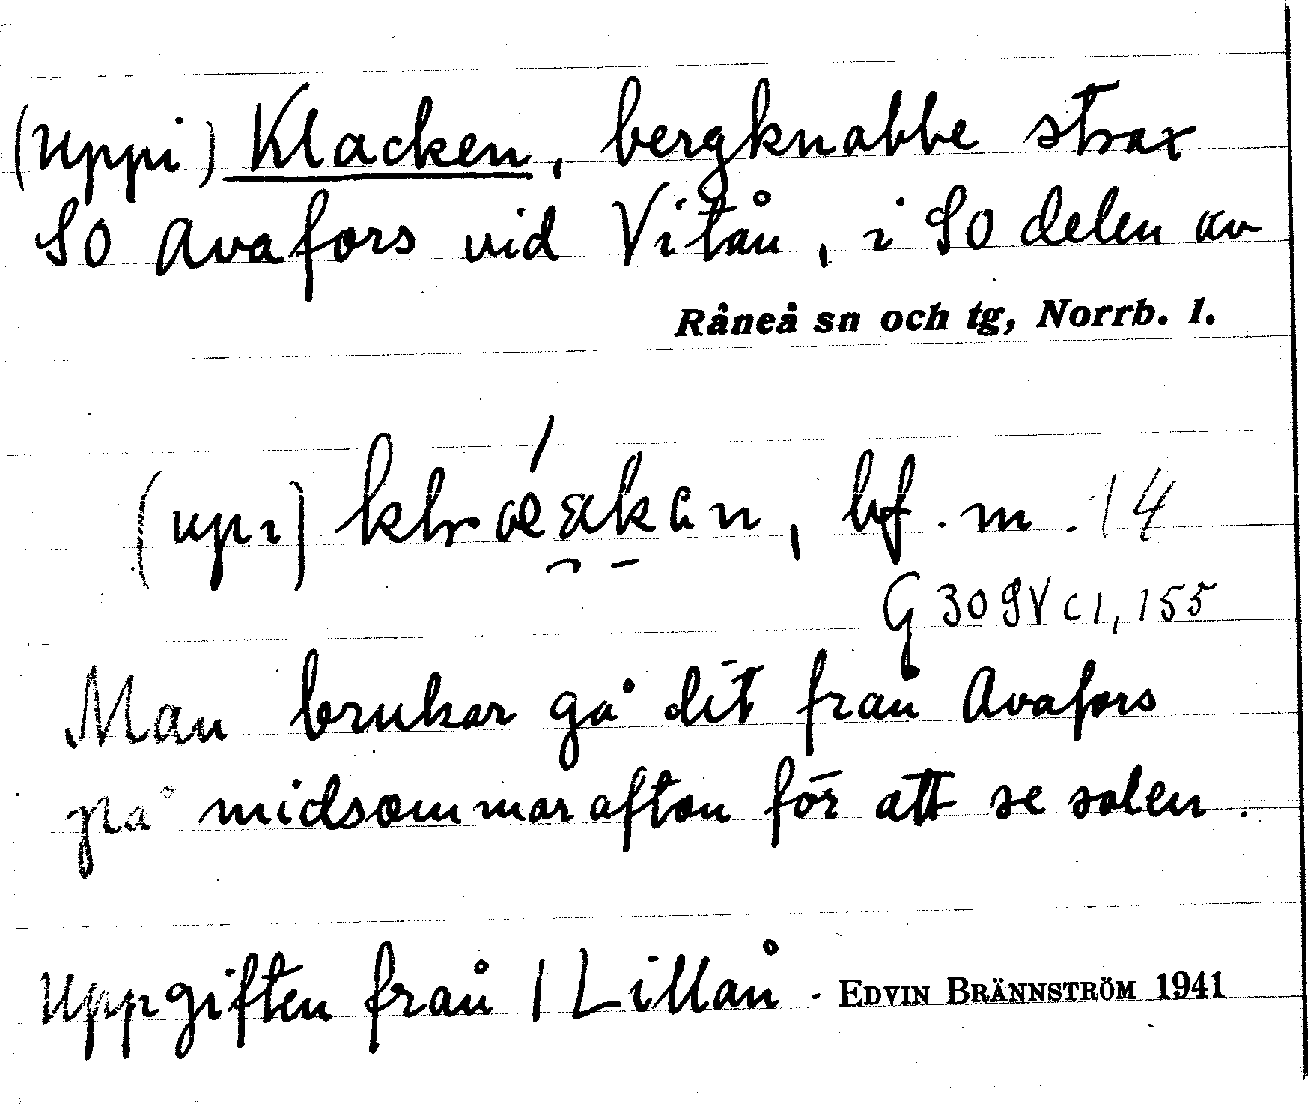 (uppi) Klacken, bergknabbe strax
SO Avafors vid Vitån, i SO delen av
Råneå sn och tg, Norrb. l.
bf. m. 14
G 309 V c 1, 155
Man brukar gå dit från Avafors
på midsommarafton för att se solen.
Uppgiften från 1 Lillån. EDVIN BRÄNNSTRÖM 1941